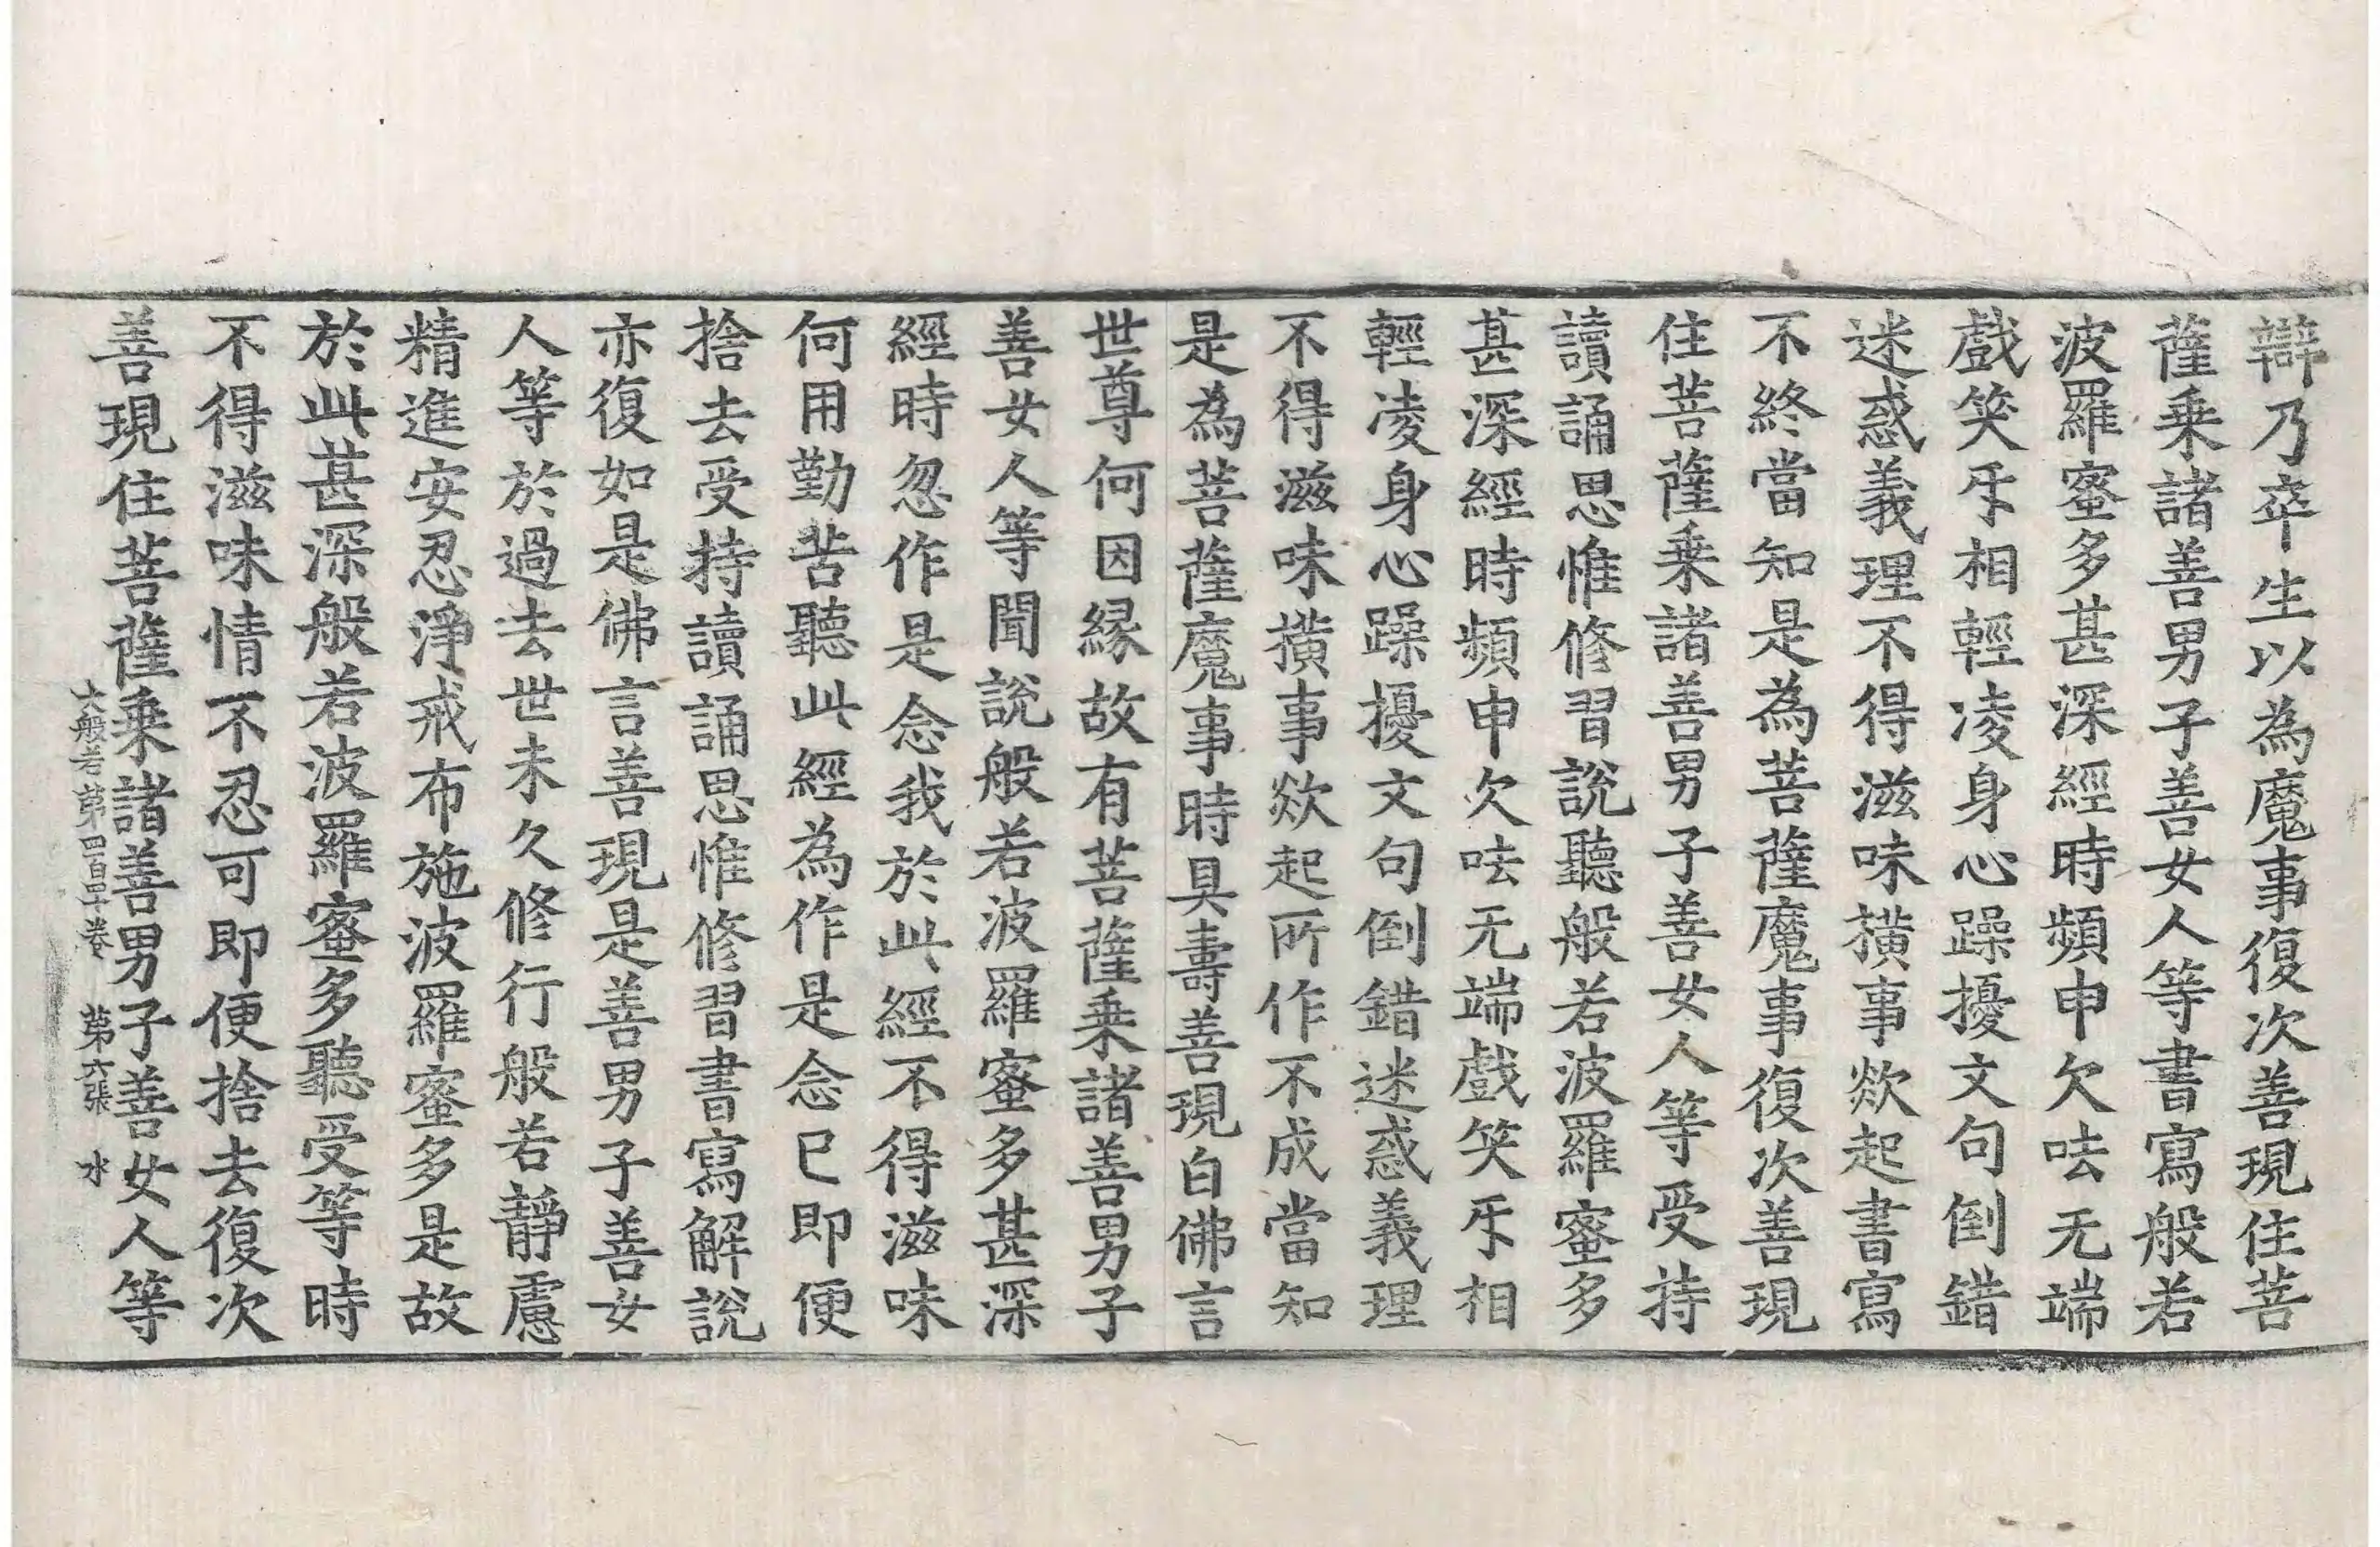 辯乃卒生以為魔事復次善現住菩
薩乗諸善男子善女人等書寫般若
波羅蜜多甚深經時頻申欠呿无端
戲笑㸦相輕凌身心躁擾文句倒錯
迷惑義理不得滋味撗事欻起書寫
不終當知是為菩薩魔事復次善現
住菩薩乗諸善男子善女人等受持
讀誦思惟修習說聽般若波羅蜜多
甚深經時頻申欠呿无端戲笑㸦相
輕凌身心躁擾文句倒錯迷惑義理
不得滋味撗事欻起所作不成當知
是為菩薩魔事時具壽善現白佛言
世尊何因緣故有菩薩乗諸善男子
善女人等聞說般若波羅蜜多甚深
經時忽作是念我於此經不得滋味
何用勤苦聽此經為作是念已即便
捨去受持讀誦思惟修習書寫解說
亦復如是佛言善現是善男子善女
人等於過去世未久修行般若靜慮
精進安忍淨戒布施波羅蜜多是故
於此甚深般若波羅蜜多聽受等時
不得滋味情不忍可即便捨去復次
善現住菩薩乗諸善男子善女人等
大般若第四百四十卷　第六張　水